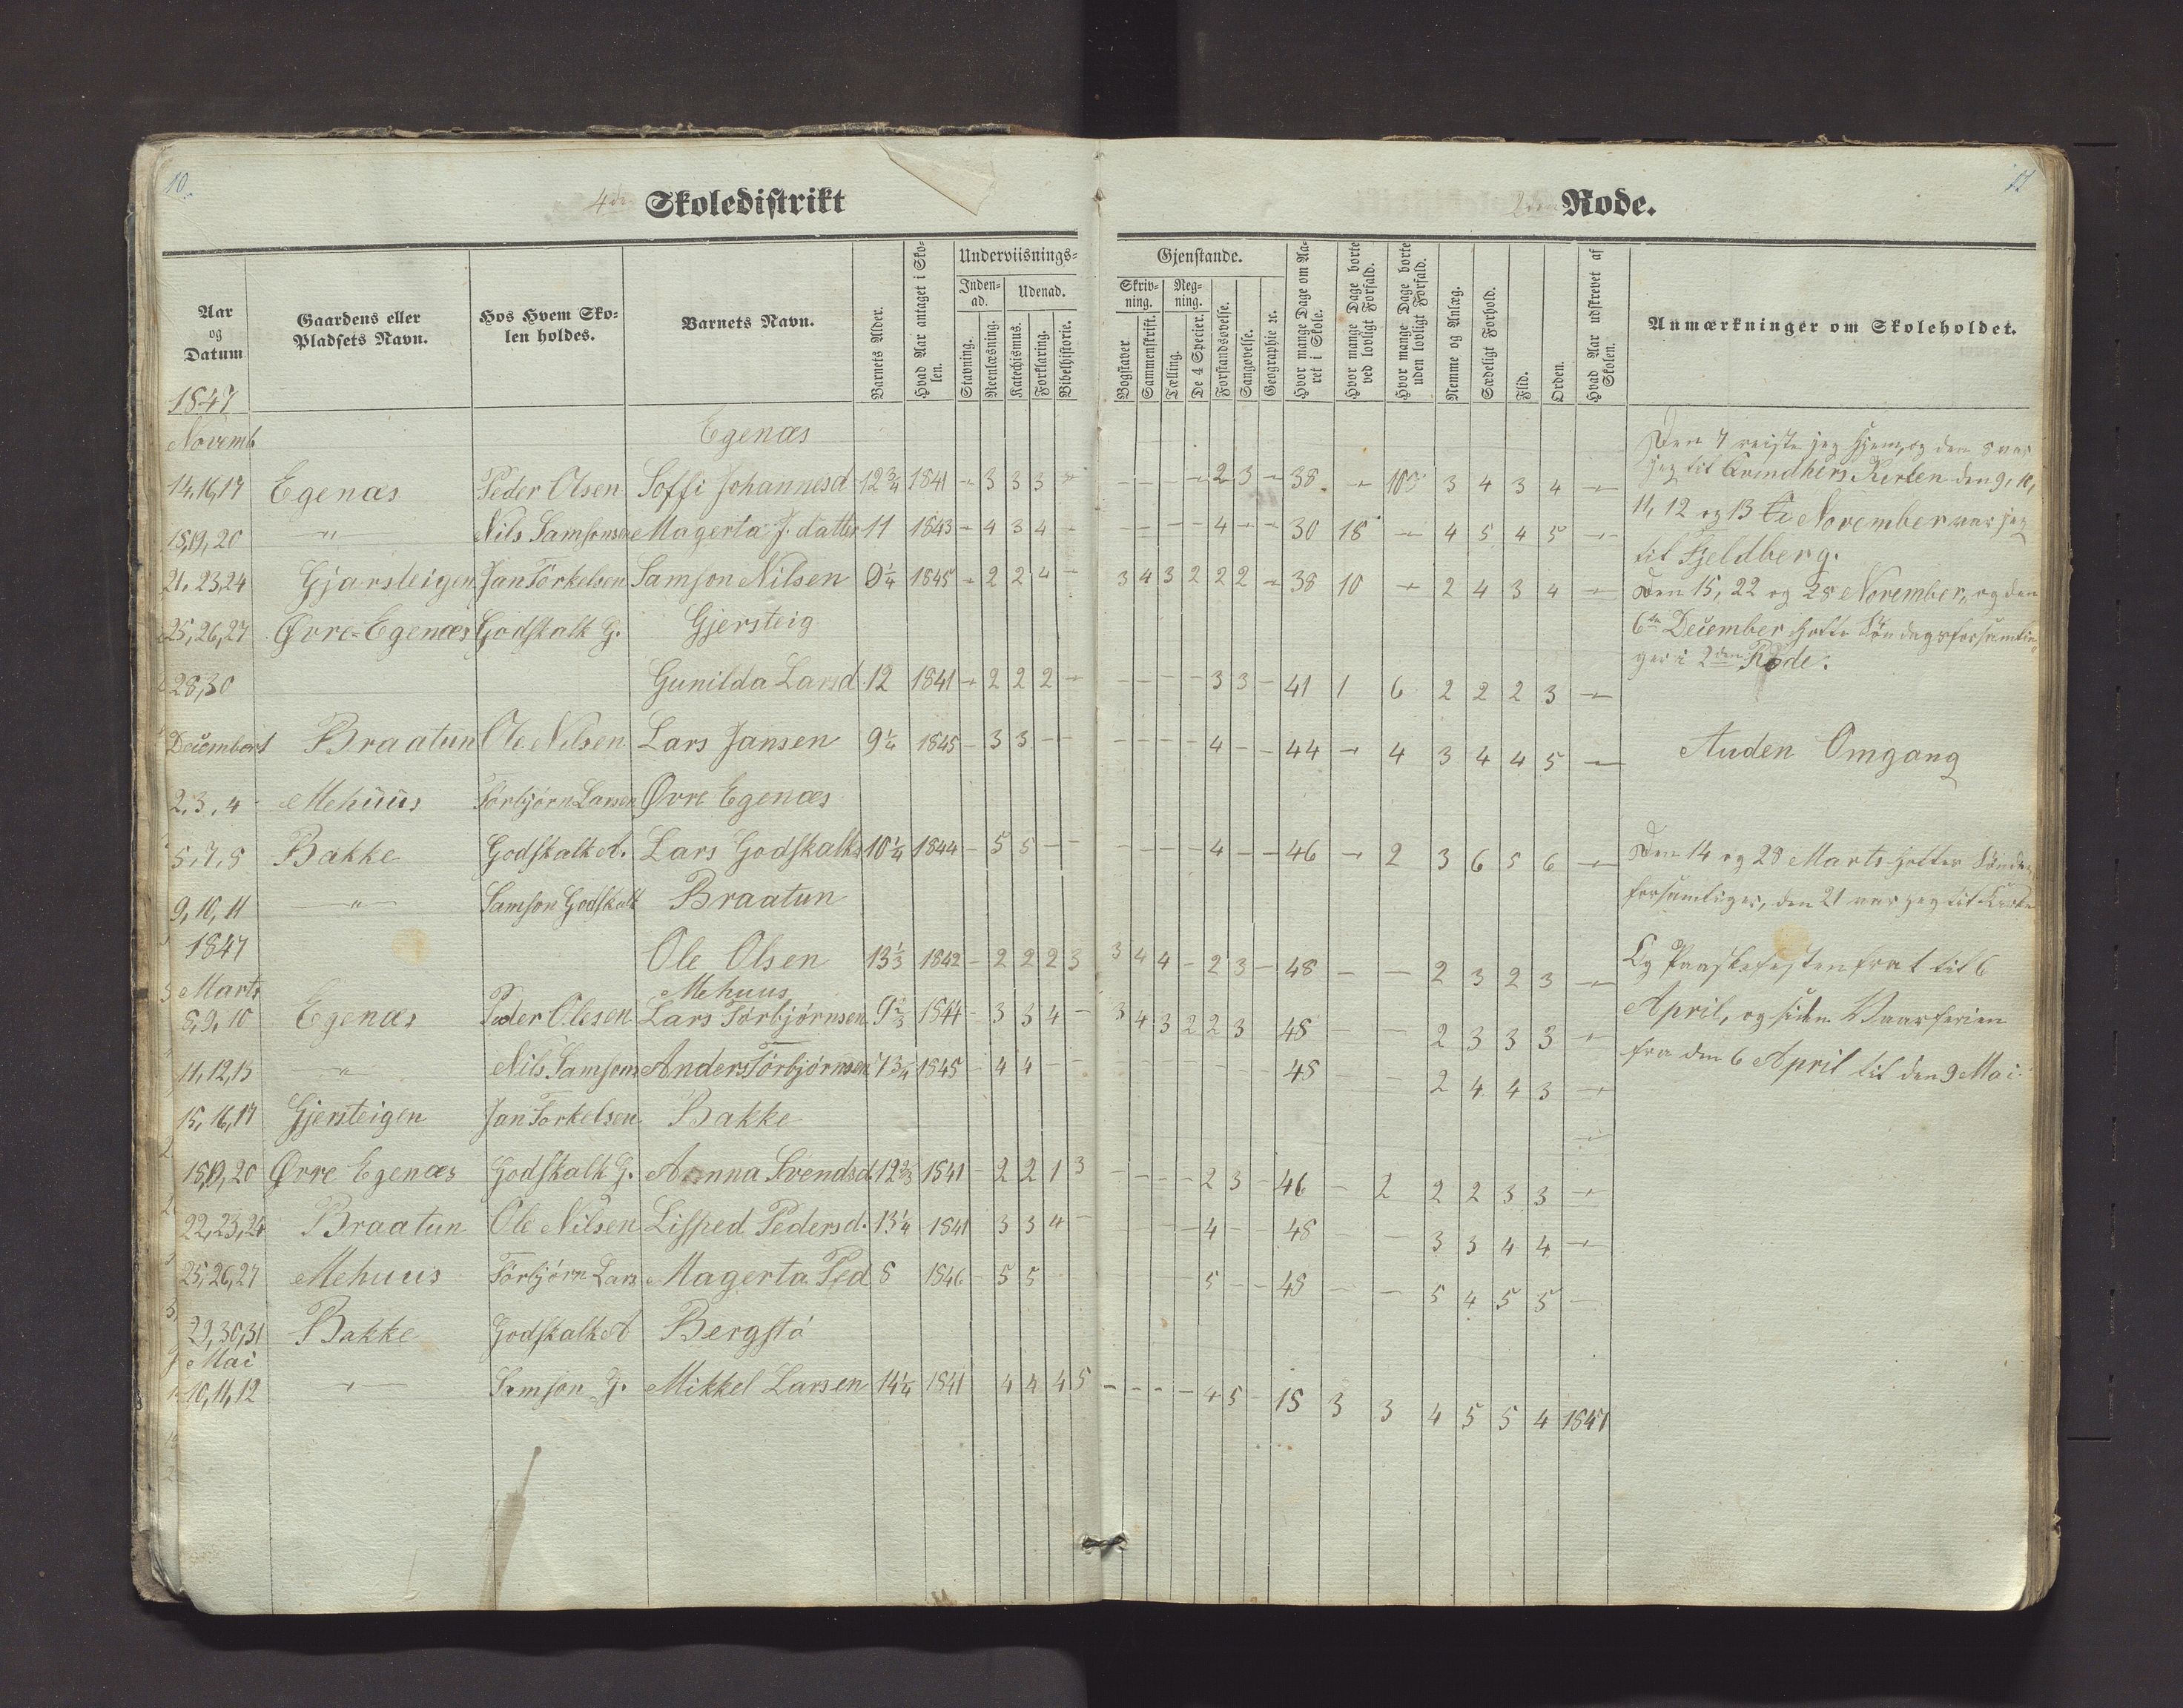 10.
11
4de Skoledistrikt
2den Rode.
Aar og Datum
Gaardens eller Pladsets Navn.
Hos Hvem Skolen holdes.
Barnets Navn.
Barnets Alder.
Hvad Aar antaget i Skolen.
Underviisnings-
Gjenstande.
Indenad.
Udenad.
Skrivning.
Regning.
Stavning.
Reenlæsning.
Katechismus.
Forklaring.
Bibelhistorie.
Bogstaver
Sammenskrift.
Tælling.
De 4 Specier.
Forstandsøvelse.
Sangøvelse.
Geographie ec.
Hvor mange Dage om Aaret i Skole.
Hvor mange Dage borte ved lovligt Forfald.
Hvor mange Dage borte uden lovligt Forfald.
Nemme og Anlæg.
Sædeligt Forhold.
Flid.
Orden.
Hvad Aar udskrevet af Skolen.
Anmærkninger om Skoleholdet.
1847
Novemb Egenæs
14,16,17 Egenæs Peder Olsen Soffi Johannesd 12 3/4 1841 - 3 3 3 - - - - - 2 3 - 38 - 10 3 4 3 4 -
18,19,20 " Nils Samsonsen Magerta J. datter 11 1843 - 4 3 4 - - - - - 4 - - 30 18 - 4 5 4 5 -
21,23,24 Gjarsteigen Jan Törkelsen Samson Nilsen 9 1/4 1845 - 2 2 4 - 3 4 3 2 2 2 - 38 10 - 2 4 3 4 -
25,26,27 Øvre-Egenæs Godskalk G. Gjersteig
28,30 Gunilda Larsd. 12 1841 - 2 2 2 - - - - - 3 3 - 41 1 6 2 2 2 3 -
December 1 Braatun Ole Nilsen Lars Jansen 9 1/4 1845 - 3 3 - - - - - - 4 - - 44 - 4 3 4 4 5 -
2,3,4 Mehuus Törbjörn Larsen Øvre Egenæs
5,7,8 Bakke Godskalk A. Lars Godskalks 10 1/4 1844 - 5 5 - - - - - - 4 - - 46 - 2 3 6 5 6 -
9,10,11 " Samson Godskalk Braatun
1847 Ole Olsen 13 1/3 1842 - 2 2 2 3 3 4 4 - 2 3 - 48 - - 2 3 2 3 -
Marts Mehuus
8,9,10 Egenæs Peder Olesen Lars Törbjörnsen 9 2/3 1844 - 3 3 4 - 3 4 3 2 2 3 48 - - 2 3 3 3 -
11,12,13 " Nils Samsons Anders Törbjörnsen 7 3/4 1845 - 4 4 - - - - - - - - - 48 - - 2 4 4 3 -
15,16,17 Gjersteigen Jan Torkelsen Bakke
18,19,20 Øvre Egenæs Godskalk G. Anna Svendsd. 12 2/3 1841 - 2 2 1 3 - - - - 2 3 - 46 - 2 2 2 3 3 -
22,23,24 Braatun Ole Nilsen Lisped Pedersd. 13 1/4 1841 3 3 4 - - - 4 - - 48 - - 3 3 4 4 -
25,26,27 Mehuus Törbjörn Lars Magerta Ped 8 1846 - 5 5 - - - 5 - - 48 - - 5 4 5 5 -
29,30,31 Bakke Godskalk A Bergstö
Mai
10,11,12 " Samson G. Mikkel Larsen 14 1/4 1841 4 4 4 5 - - - - 4 5 - 18 3 3 4 5 5 4 1847
Den 7 reiste jeg Hjem, og den 8 var
jeg til Kirken den 9, 10,
11, 12 og 13 November var jeg
til Fjeldberg.
Den 15, 22 og 28 November, og den
6te December Søndagsforsamlin-
ger i 2den Rode.
Anden Omgang
Den 14 og 28 Marts Søndags
forsamlinger, den 21 var jeg til Kirke
Og Paaskefesten fra 1 til 6
April, og siden Vaarferien
fra den 6 April til den 9 Mai.